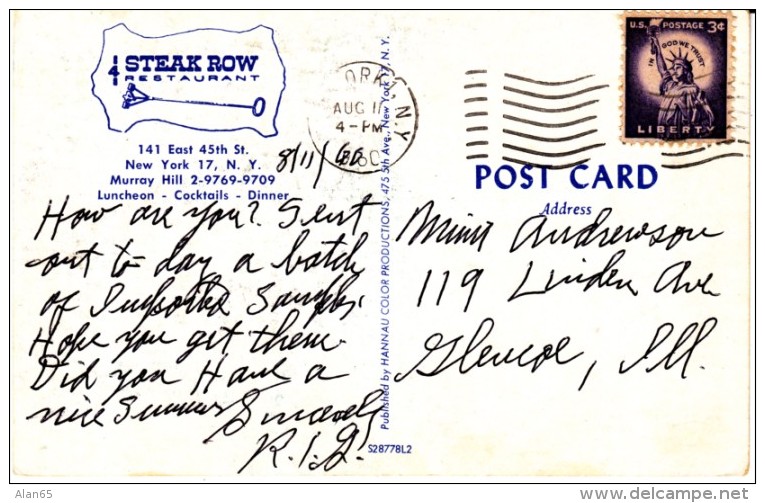 1/4 STEAK ROW
RESTAURANT
141 East 45th St.
New York 17, N. Y.
Murray Hill 2-9769-9709
Luncheon - Cocktails - Dinner
8/11/60
How are you? Sent
out to day a batch
of Imported Samples.
Hope you get them.
Did you Have a
nice Summer Sincerely
R.I.G.
Published by HANNAU COLOR PRODUCTIONS, 475 5th Ave., New York 17, N. Y.
S28778L2
N.Y.
AUG 11
4-PM
U.S. POSTAGE 3¢
IN GOD WE TRUST
LIBERTY
POST CARD
Address
Andrewson
119 Linden Ave
Glencoe, Ill.
Alan65
www.delcampe.net